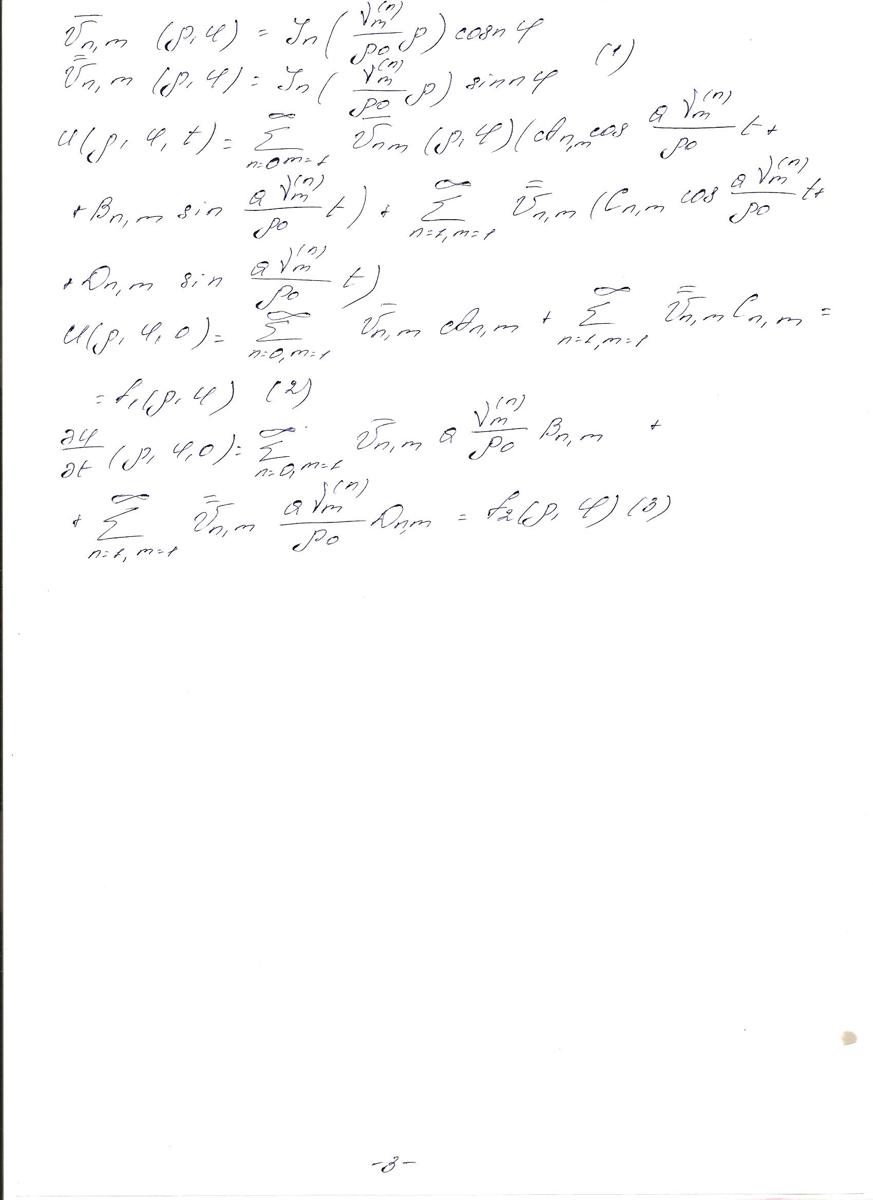 v̄n,m (ρ,φ) = Jn(νm^(n)/ρ0 ρ) cosnφ
v̿n,m (ρ,φ) = Jn(νm^(n)/ρ0 ρ) sinnφ (1)
u(ρ, φ, t) = ∑ n=0,m=1 ^∞ v̄n,m (ρ,φ)(An,m cos aνm^(n)/ρ0 t +
+ Bn,m sin aνm^(n)/ρ0 t) + ∑ n=1,m=1 ^∞ v̿n,m (Cn,m cos aνm^(n)/ρ0 t +
+ Dn,m sin aνm^(n)/ρ0 t)
u(ρ, φ, 0) = ∑ n=0,m=1 ^∞ v̄n,m An,m + ∑ n=1,m=1 ^∞ v̿n,m Cn,m =
= f1(ρ,φ) (2)
∂u/∂t (ρ, φ,0) = ∑ n=0,m=1 ^∞ v̄n,m a νm^(n)/ρ0 Bn,m +
+ ∑ n=1,m=1 ^∞ v̿n,m aνm^(n)/ρ0 Dn,m = f2(ρ, φ) (3)
-3-